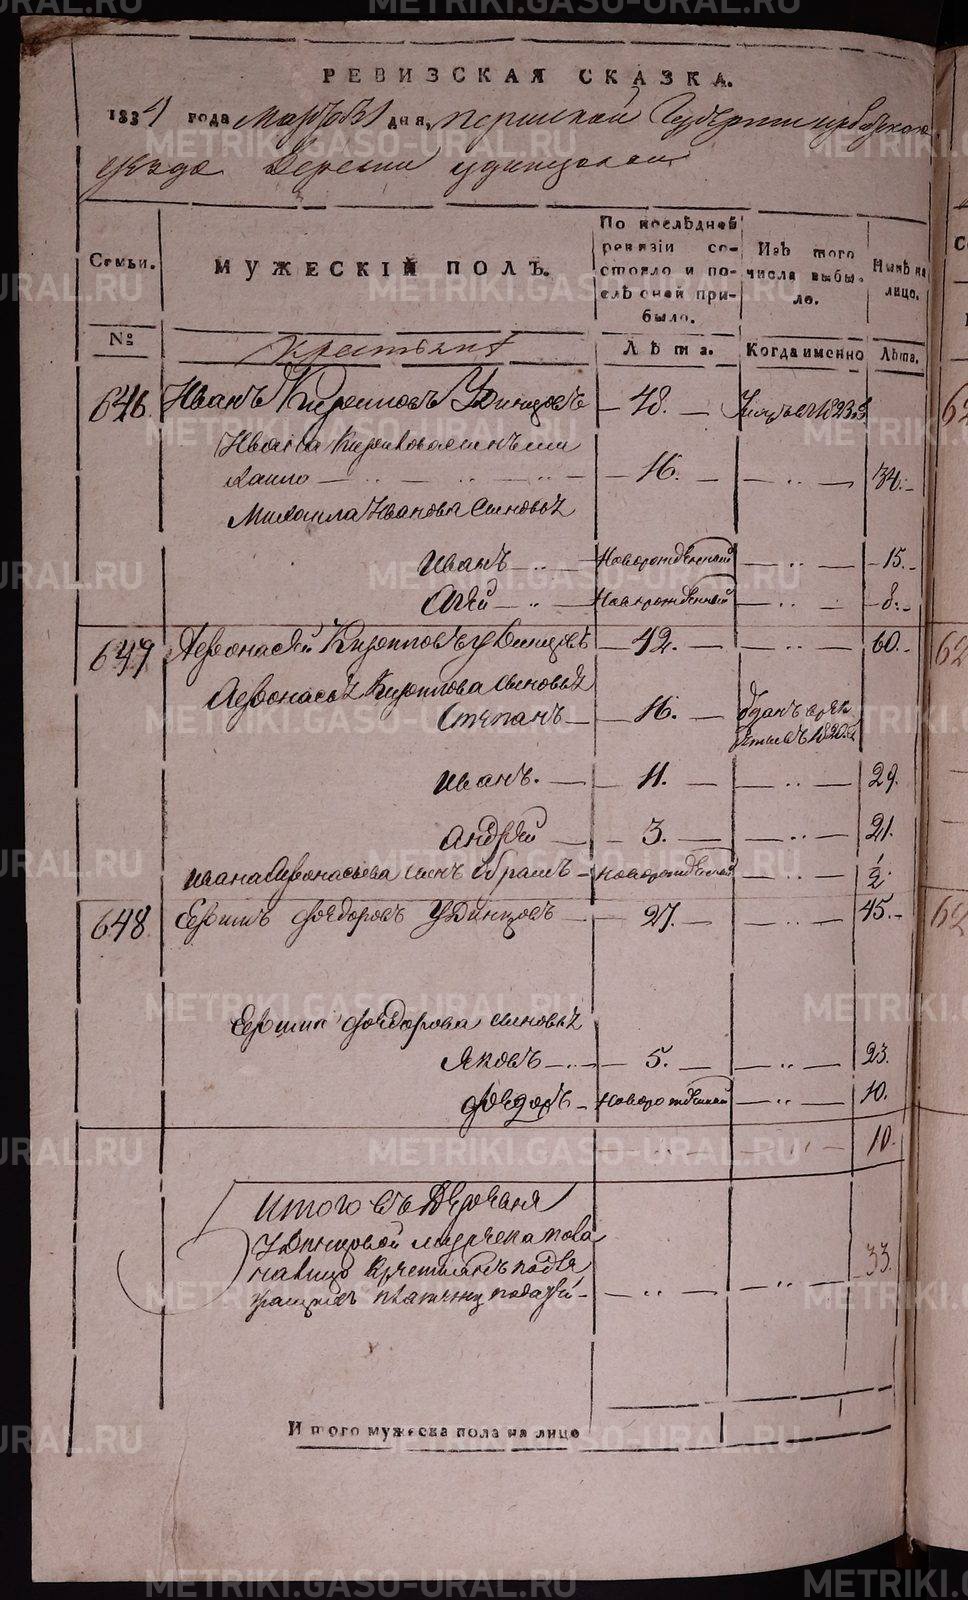 РЕВИЗСКАЯ СКАЗКА.
1834 года марта 1 дня, Пермской Губернии Ирбитского
уезда Деревни Удинцовой
Семьи.
МУЖЕСКІЙ ПОЛЪ.
По послѣдней ревизіи состояло и послѣ оной прибыло.
Изъ того числа выбыло.
Нынѣ на лицо.
№
Крестьяне
Лѣта.
Когда именно
Лѣта.
646. Иванъ Кириловъ Удинцовъ — 48. — 1823
Ивана Кирилова сынъ Михаило — 16. — 34.
Михаила Иванова сыновья
Иванъ — Новорожденный — 15.
Агей — Новорожденный — 8.
647. Афонасей Кириловъ Удинцовъ — 42. — 60.
Афонасья Кирилова сыновья
Степанъ — 16. — Отданъ въ рекруты въ 1820
Иванъ. — 11. — 29.
Андрей — 3. — 21.
Ивана Афонасьева сынъ — Новорожденной — 1/2
648. Ефимъ Фёдоровъ Удинцовъ — 27. — 45.
Ефима Фёдорова сыновья
Яковъ — 5. — 23.
Фёдоръ — Новорожденный — 10.
10.
Итого въ Деревне
Удинцовой мужеска пола
налицо Крестьянъ
податей — 33.
Итого мужеска пола на лицо
METRIKI.GASO-URAL.RU